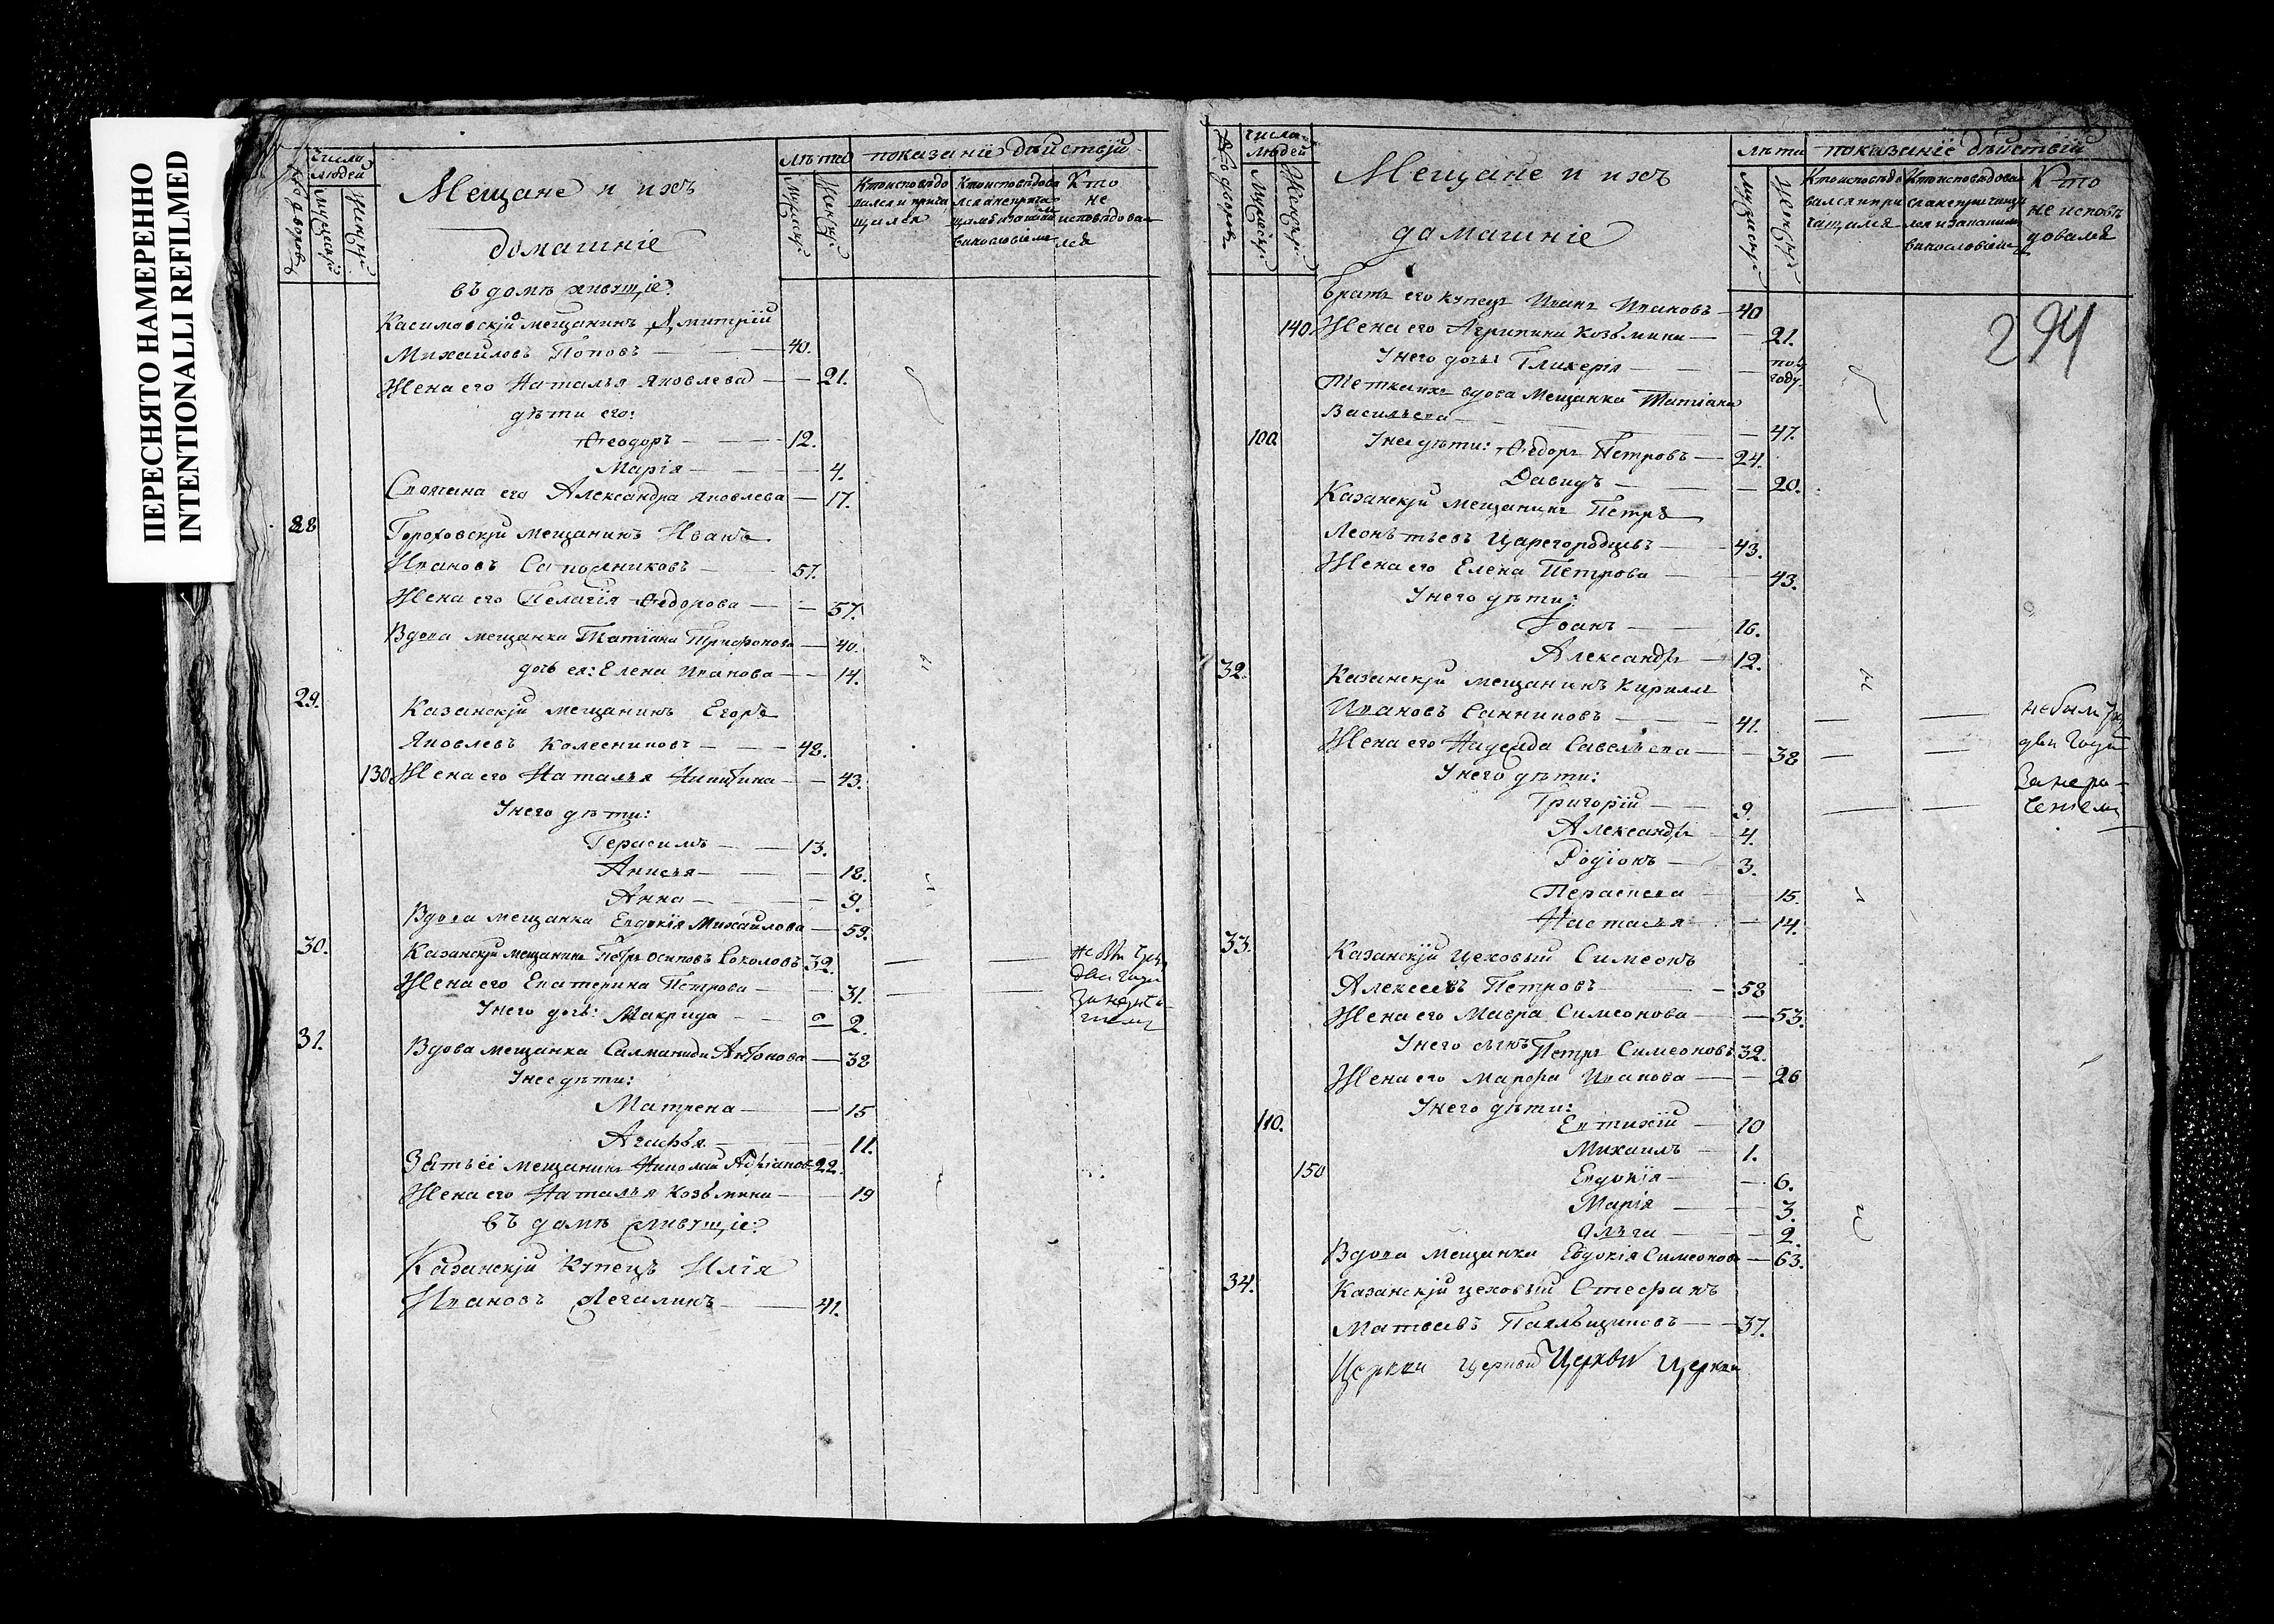 ПЕРЕСНЯТО НАМЕРЕННО
INTENTIONALLI REFILMED
Число дворовъ
Числа людей
Мужескъ
Женскъ
Мещане и ихъ
домашніе
лѣта
Мужескъ
Женскъ
показаніи дѣйствій
Кто исповѣдо
вался и прича
щался
Кто исповѣдова
лся а не прича
щался и за какимъ
винословіемъ
Кто
не
исповѣдова
лся
въ домѣ живущіе:
Касимовскій мещанинъ Дмитрій
Михаиловъ Поповъ — 40.
Жена его Наталья Яковлева — 21.
дѣти его:
Ѳеодоръ — 12.
Марія — 4.
Своячена его Александра Яковлева — 17.
28 Гороховскій мещанинъ Иванъ
Ивановъ Сапожниковъ — 57.
Жена его Пелагія Ѳедорова — 57.
Вдова мещанка Татіана Трифонова — 40.
дочь ея: Елена Иванова — 14.
29. Казанскій мещанинъ Егоръ
Яковлевъ Колесниковъ — 48.
130 Жена его Наталья Никитина — 43.
У него дѣти:
Герасимъ — 13.
Анисья — 18.
Анна — 9.
Вдова мещанка Евдокія Михаилова — 59.
30. Казанскій мещанинъ Петръ Осиповъ Соколовъ 32. — —
два года
Жена его Екатерина Петрова — 31. — —
У него дочь: Макрида — 2.
31. Вдова мещанка Саломанида Антонова — 38
У нее дѣти:
Матрена — 15
Агафья — 11.
Зять её мещанинъ Николай Адріановъ 22.
Жена его Наталья Козьмина — 19
въ домѣ живущіе:
Казанскій Купецъ Илія
Ивановъ — 41.
Число дворовъ
Числа людей
Мужескъ
Женскъ
Мещане и ихъ
домашніе
лѣта
Мужескъ
Женскъ
показаніе дѣйствій
Кто исповѣдо
вался и при
чащался
Кто исповѣдова
лся а не причащ
лся и за какимъ
винословіемъ
Кто
не исповѣ
довался
294
Братъ его купецъ Иванъ Ивановъ — 40
140 Жена его Агрипина Козьмина — 21.
У него дочь Гликерія — пол
году
Тетка ихъ вдова Мещанка Татіана
Васильева — 47.
100. У нее дѣти: Ѳедоръ Петровъ — 24.
Давидъ — 20.
Казанскій мещанинъ Петръ
Леонтьевъ Царегородцовъ — 43.
Жена его Елена Петрова — 43.
У него дѣти:
Іоанъ — 16.
Александръ — 12.
32. Казанскій мещанинъ Кирилъ
Ивановъ Санниковъ — 41. — — небыли у и
Жена его Надежда Савельева — 38 — — два года
У него дѣти:
Григорій — 9. — —
Александръ — 4.
Родіонъ — 3.
Пераскева — 15.
Настасья — 14.
33. Казанскій цеховый Симеонъ
Алексеевъ Петровъ — 58
Жена его Мавра Симеонова — 53.
У него сынъ Петръ Симеоновъ 32.
Жена его Марфа Иванова — 26
У него дѣти:
110. Евтихій — 10
Михаилъ — 1.
150 Евдокія — 6.
Марія — 3.
Ольга — 2.
Вдова мещанка Евдокія Симеонова — 63.
34. Казанскій цеховый Стефанъ
Матвеевъ Паяльщиковъ — 37.
Церкви церкви Церкви церкви